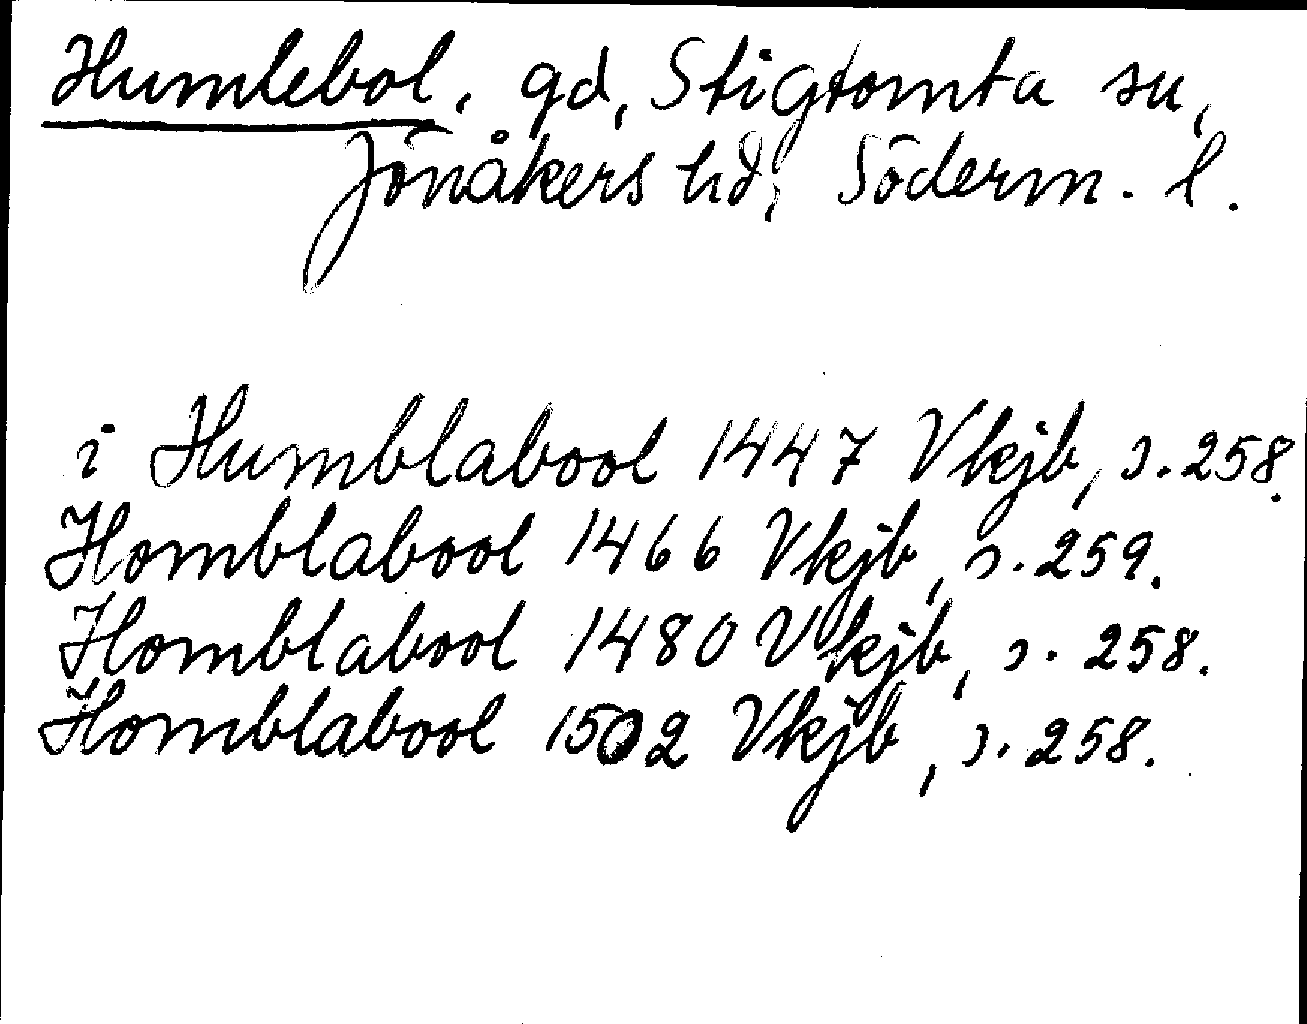 Humlebol, gd, Stigtomta sn,
Jönåkers hd, Söderm. l.
i Humblabool 1447 Vkjb, s. 258.
Homblabool 1466 Vkjb, s. 259.
Homblabool 1480 Vkjb, s. 258.
Homblabool 1502 Vkjb, s. 258.